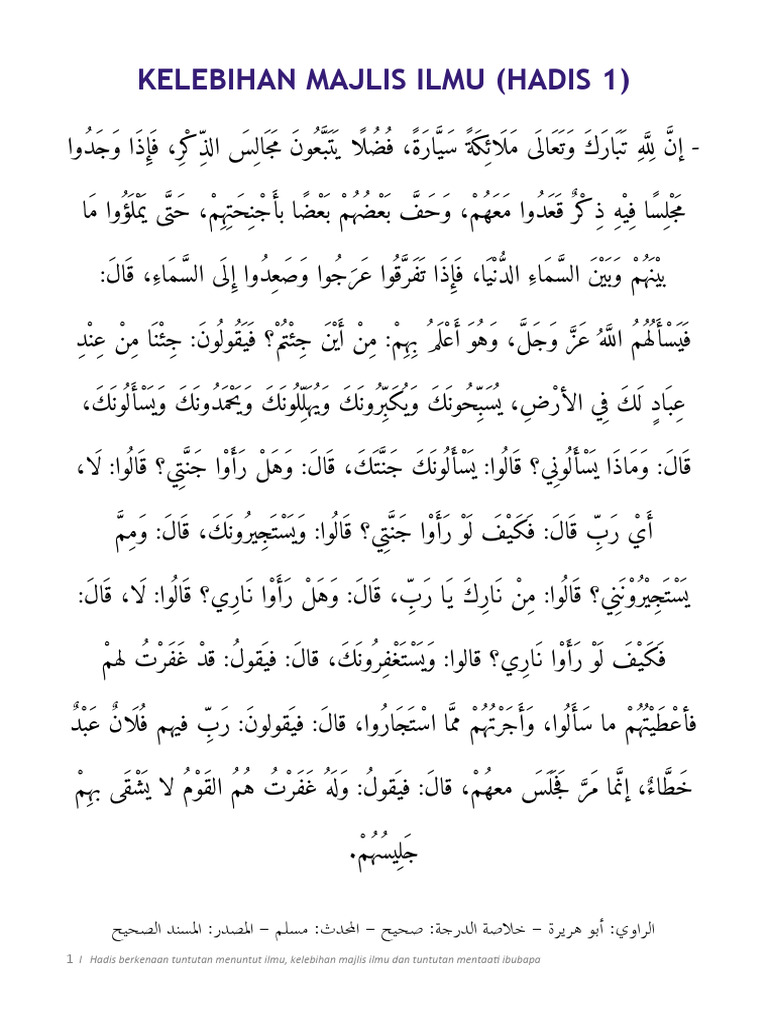 KELEBIHAN MAJLIS ILMU (HADIS 1)
- إنَّ لِلَّهِ تَبَارَكَ وَتَعَالَى مَلَائِكَةً سَيَّارَةً، فُضُلًا يَتَتَبَّعُونَ مَجَالِسَ الذِّكْرِ، فَإِذَا وَجَدُوا
مَجْلِسًا فِيْهِ ذِكْرٌ قَعَدُوا مَعَهُمْ، وَحَفَّ بَعْضُهُمْ بَعْضًا بأَجْنِحَتِهِمْ، حَتَّى يَمْلَؤُوا مَا
بيْنَهُمْ وَبَيْنَ السَّمَاءِ الدُّنْيَا، فَإِذَا تَفَرَّقُوا عَرَجُوا وَصَعِدُوا إِلَى السَّمَاءِ، قَالَ:
فَيَسْأَلُهُمُ اللَّهُ عَزَّ وَجَلَّ، وَهُوَ أَعْلَمُ بِهِمْ: مِنْ أَيْنَ جِئْتُمْ؟ فَيَقُولُونَ: جِئْنَا مِنْ عِنْدِ
عِبَادٍ لَكَ فِي الأرْضِ، يُسَبِّحُونَكَ وَيُكَبِّرُونَكَ وَيُهَلِّلُونَكَ وَيَحْمَدُونَكَ وَيَسْأَلُونَكَ،
قَالَ: وَمَاذَا يَسْأَلُونِي؟ قالُوا: يَسْأَلُونَكَ جَنَّتَكَ، قَالَ: وَهَلْ رَأَوْا جَنَّتِي؟ قالُوا: لَا،
أَيْ رَبِّ قَالَ: فَكَيْفَ لَوْ رَأَوْا جَنَّتِي؟ قَالُوا: وَيَسْتَجِيرُونَكَ، قَالَ: وَمِمَّ
يَسْتَجِيْرُوْنَنِي؟ قَالُوا: مِنْ نَارِكَ يَا رَبِّ، قَالَ: وَهَلْ رَأَوْا نَارِي؟ قَالُوا: لَا، قَالَ:
فَكَيْفَ لَوْ رَأَوْا نَارِي؟ قالوا: وَيَسْتَغْفِرُونَكَ، قالَ: فيَقولُ: قدْ غَفَرْتُ لهمْ
فأعْطَيْتُهُمْ ما سَأَلُوا، وَأَجَرْتُهُمْ ممَّا اسْتَجَارُوا، قالَ: فيَقولونَ: رَبِّ فيهم فُلَانٌ عَبْدٌ
خَطَّاءٌ، إنَّما مَرَّ فَجَلَسَ معهُمْ، قالَ: فيَقولُ: وَلَهُ غَفَرْتُ هُمُ القَوْمُ لا يَشْقَى بهِمْ
جَلِيسُهُمْ.
الراوي: أبو هريرة – خلاصة الدرجة: صحيح – المحدث: مسلم – المصدر: المسند الصحيح
1 I Hadis berkenaan tuntutan menuntut ilmu, kelebihan majlis ilmu dan tuntutan mentaati ibubapa